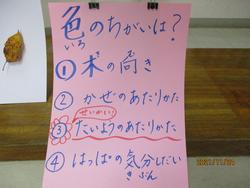 色のちがいは?
いろ
①木の向き
②かぜのあたりかた
せいかい!
③たいようのあたりかた
④はっぱの気分しだい
きぶん